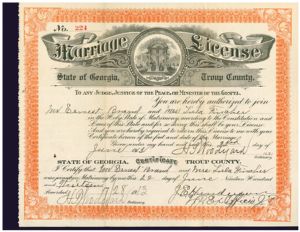 No. 224
Marriage License
State of Georgia, Troup County.
TO ANY JUDGE, JUSTICE OF THE PEACE, OR MINISTER OF THE GOSPEL
You are hereby authorized to join
Mr Earnest Brand and Mrs Lula
in the Holy State of Matrimony according to the Constitution and
Laws of this State and for so doing this shall be your License
And you are hereby required to return this License to me with your
Certificate hereon of the fact and date of the Marriage.
Given under my hand and seal this 28th day of
June
STATE OF GEORGIA. Certificate TROUP COUNTY.
I Certify that Mr Earnest Brand and Mrs Lula
were joined in Matrimony by me this 28 day of June Nineteen Hundred
and Thirteen